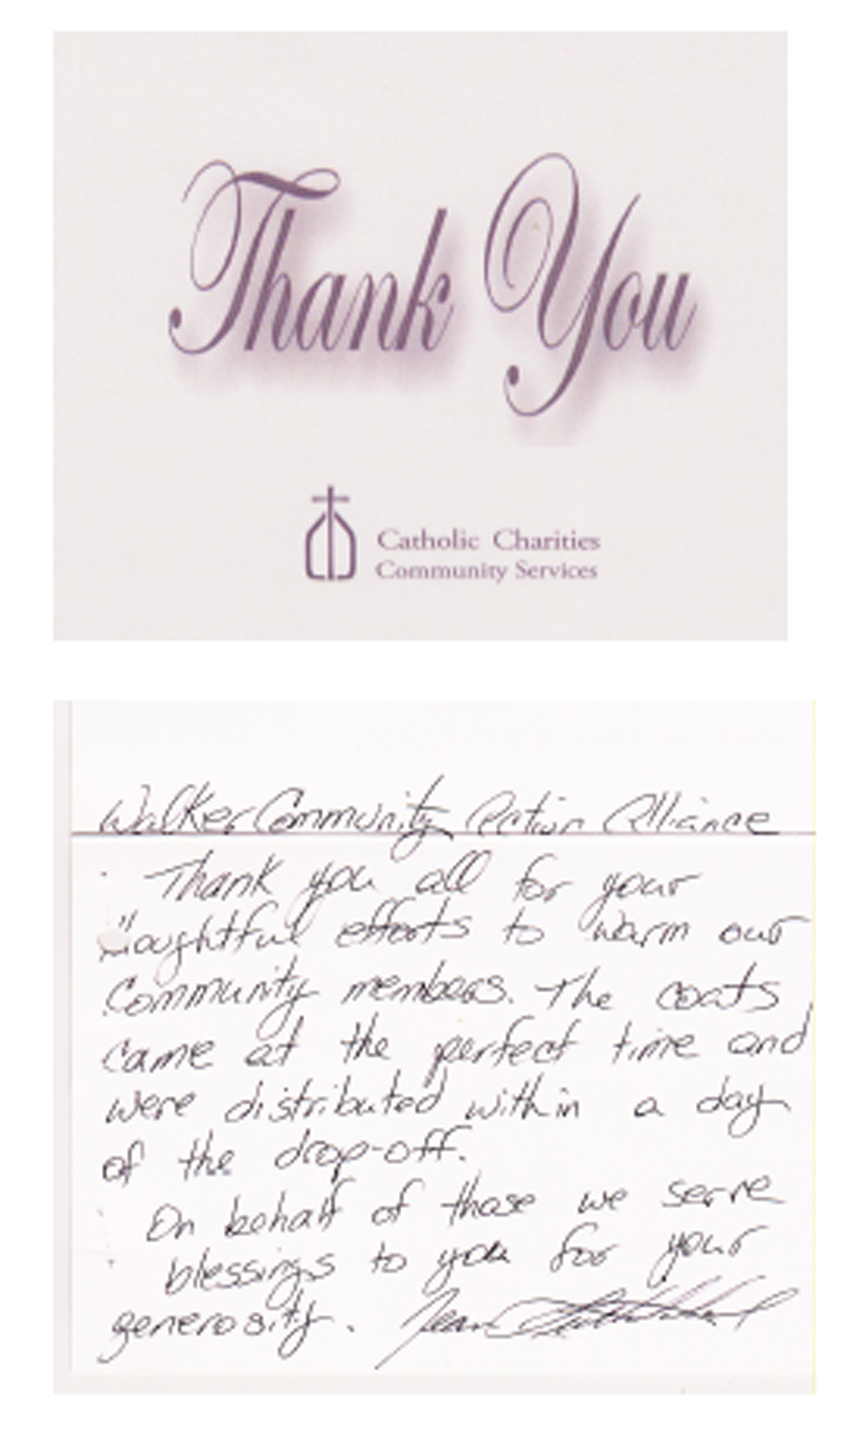 Thank You
Catholic Charities
Community Services
Walker Community Action Alliance
Thank you all for your
thoughtful efforts to warm our
Community members. The coats
came at the perfect time and
were distributed within a day
of the drop-off.
On behalf of those we serve
blessings to you for your
generosity. Jean